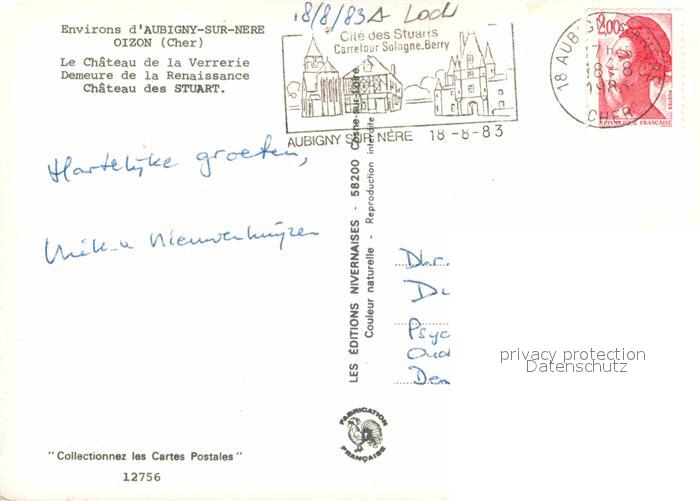 Environs d'AUBIGNY-SUR-NERE
OIZON (Cher)
Le Château de la Verrerie
Demeure de la Renaissance
Château des STUART.
18/8/83
Cité des Stuarts
Carrefour Sologne.Berry
AUBIGNY SUR NÈRE 18-8-83
2,00
POSTES
REPUBLIQUE FRANÇAISE
18 AUBIGNY
17 H
18-8
CHER
Hartelijke groeten,
Nieuwenhuijzen
LES ÉDITIONS NIVERNAISES - 58200 Cosne-sur-Loire
Couleur naturelle - Reproduction interdite
Dhr.
Psyc
Oud
Den
privacy protection
Datenschutz
FABRICATION
FRANÇAISE
"Collectionnez les Cartes Postales"
12756